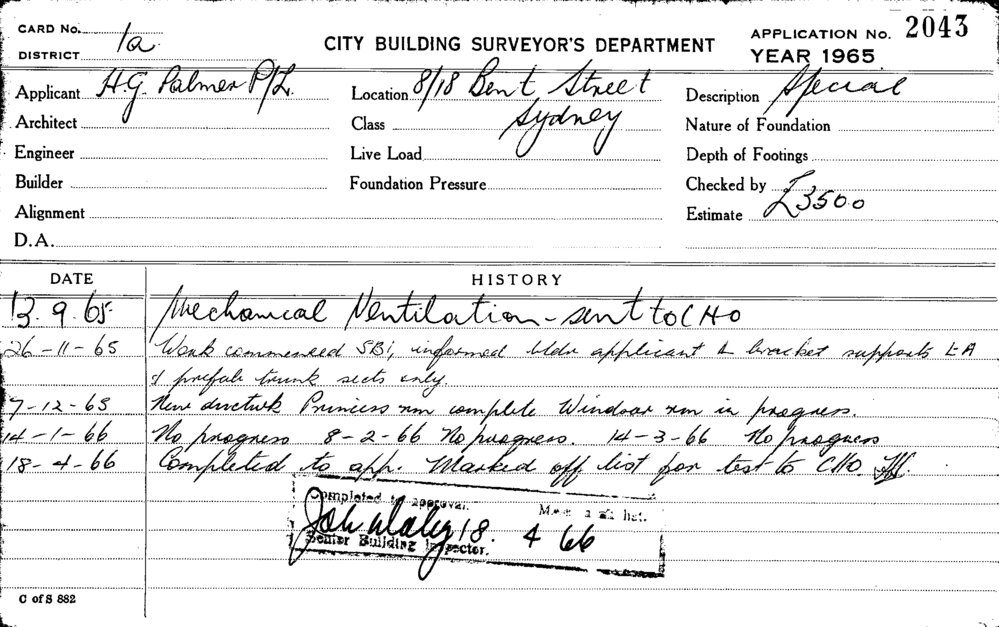 CARD No.
1a
DISTRICT
CITY BUILDING SURVEYOR'S DEPARTMENT
APPLICATION No. 2043
YEAR 1965
Applicant H.G. Palmer P/L.
Location 8/18 Bent Street
Sydney
Description Special
Architect
Class
Nature of Foundation
Engineer
Live Load
Depth of Footings
Builder
Foundation Pressure
Checked by
Alignment
Estimate £3500
D.A.
DATE
HISTORY
13.9.65 Mechanical Ventilation - sent to CHO
26-11-65 Work commenced SBI, informed applicant & bracket supports
& prefab trunk sects only.
7-12-65 New ductwk Princess rm complete Windsor rm in progress.
14-1-66 No progress 8-2-66 No progress. 14-3-66 No progress
18-4-66 Completed to app. Marked off list for test to CHO.
Completed to approval.
18. 4 66
Senior Building Inspector.
C of S 882